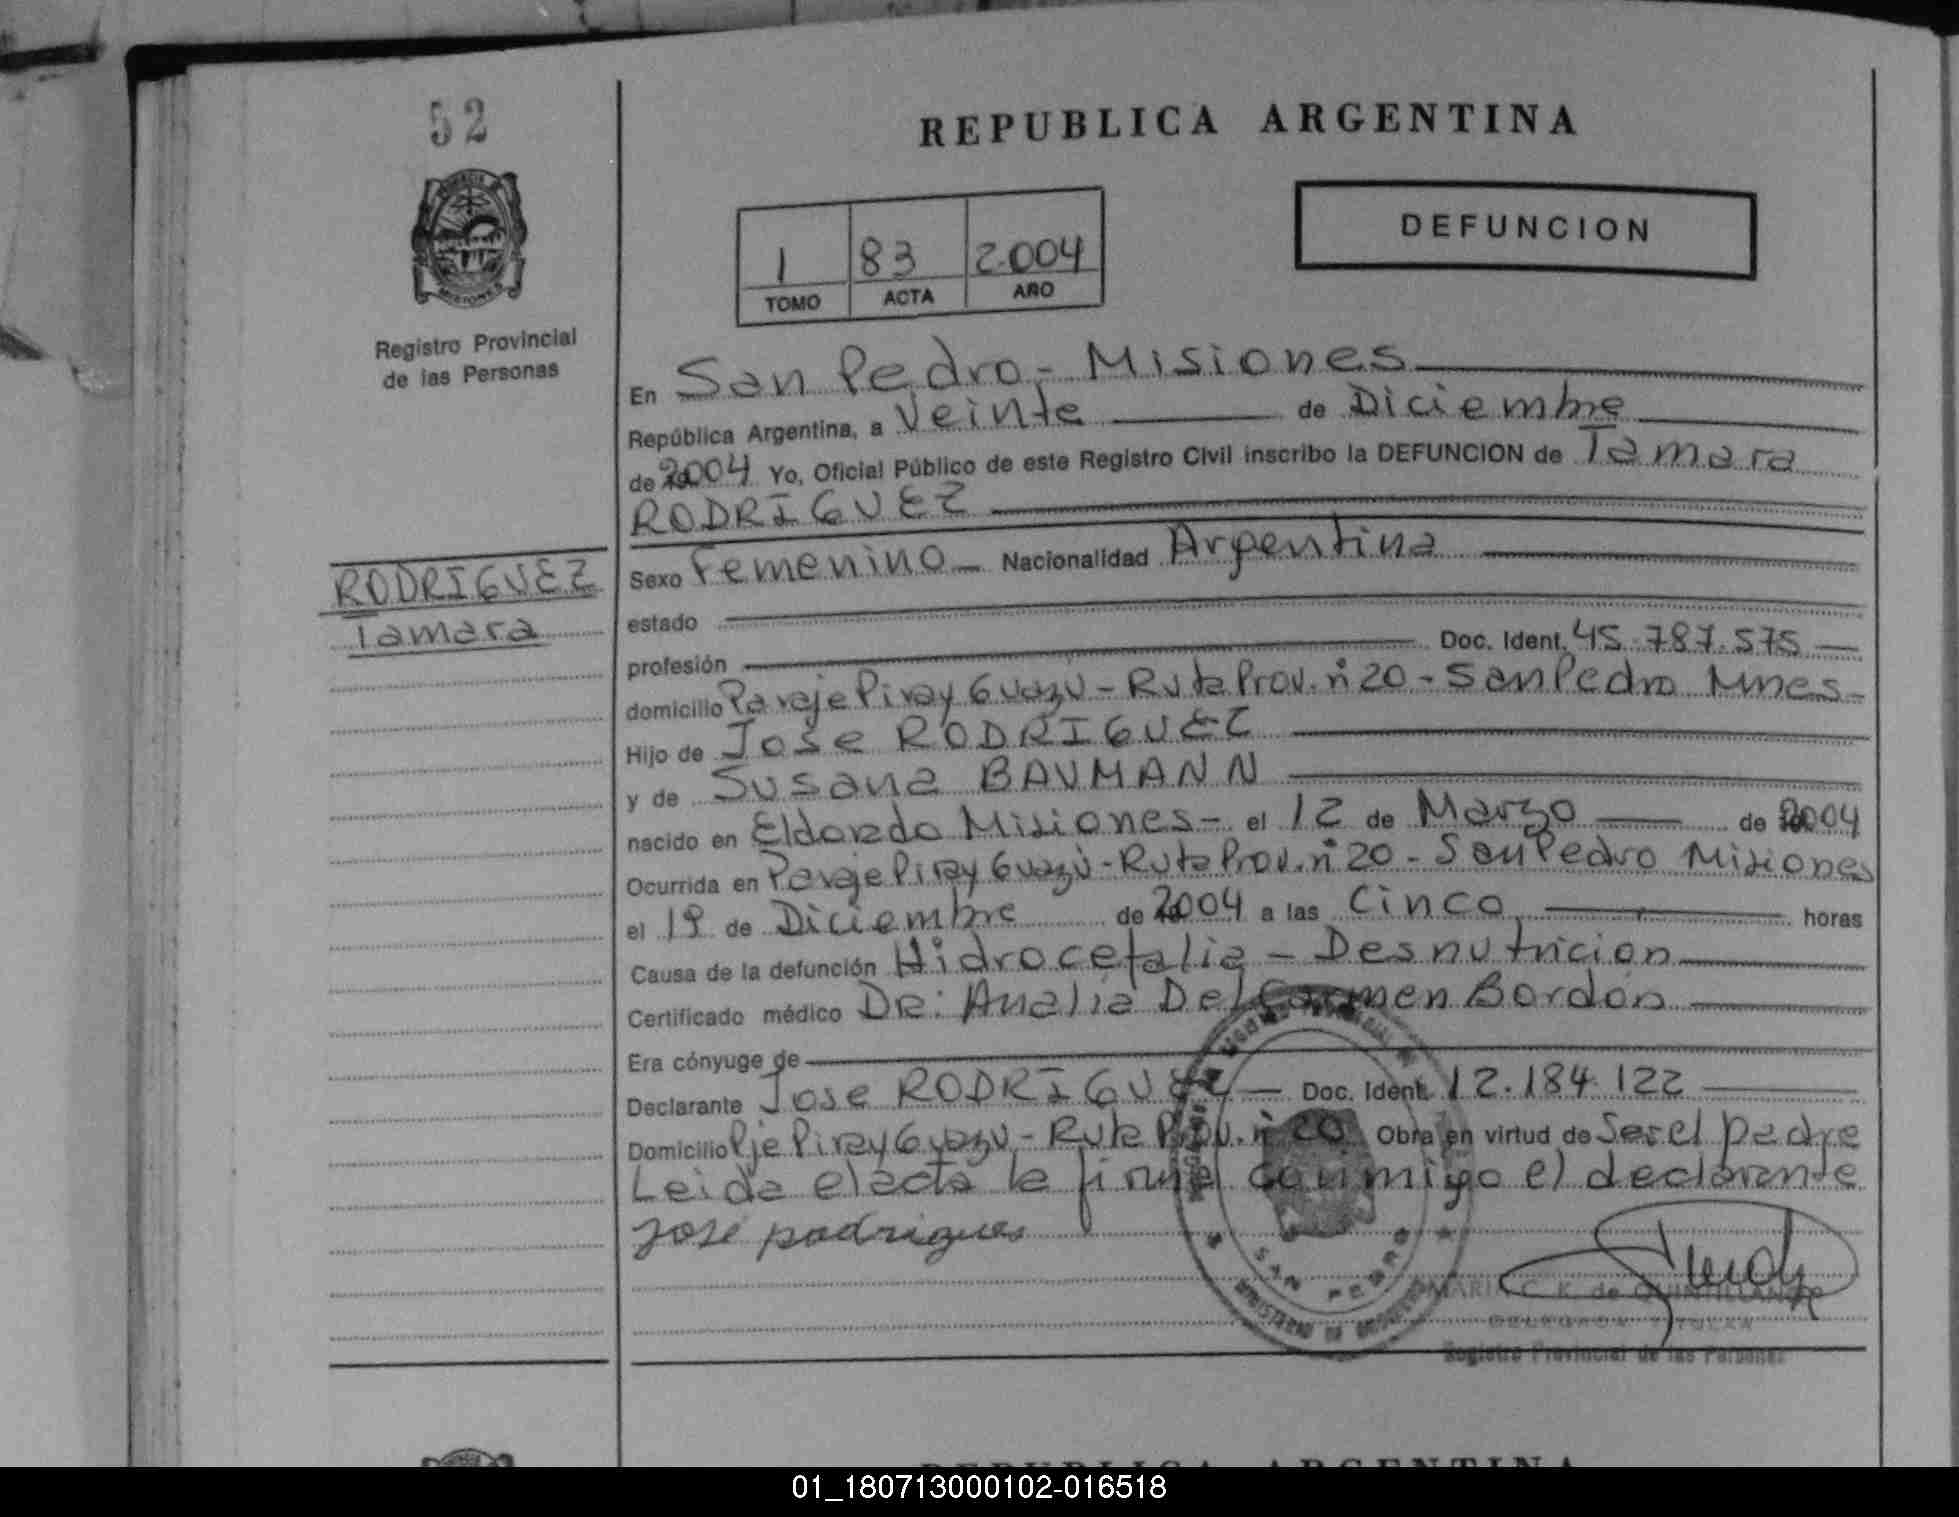 52
REPUBLICA ARGENTINA
DEFUNCION
1 83 2004
TOMO ACTA AÑO
Registro Provincial
de las Personas
En San Pedro - Misiones
República Argentina, a Veinte de Diciembre
de 2004 Yo, Oficial Público de este Registro Civil inscribo la DEFUNCION de Tamara
RODRIGUEZ
RODRIGUEZ
Tamara
Sexo Femenino - Nacionalidad Argentina
estado
profesión Doc. Ident. 45.787.575
domicilio Paraje Piray Guazú - Ruta Prov. nº 20 - San Pedro Mnes-
Hijo de Jose RODRIGUEZ
y de Susana BAUMANN
nacido en Eldorado Misiones - el 12 de Marzo de 2004
Ocurrida en Paraje Piray Guazú - Ruta Prov. nº 20 - San Pedro Misiones
el 19 de Diciembre de 2004 a las Cinco horas
Causa de la defunción Hidrocefalia - Desnutricion
Certificado médico Dr: Analia Del Carmen Bordón
Era cónyuge de
Declarante Jose RODRIGUEZ - Doc. Ident. 12.184.122
Domicilio Pje Piray Guazu - Ruta Prov. nº 20 Obra en virtud de Ser el padre
Leida el acta la firma conmigo el declarante
José rodrigues
SAN PEDRO
MARIA C. K. de QUINTILLAN
DELEGADA TITULAR
Registro Provincial de las Personas
REPUBLICA ARGENTINA
01_180713000102-016518